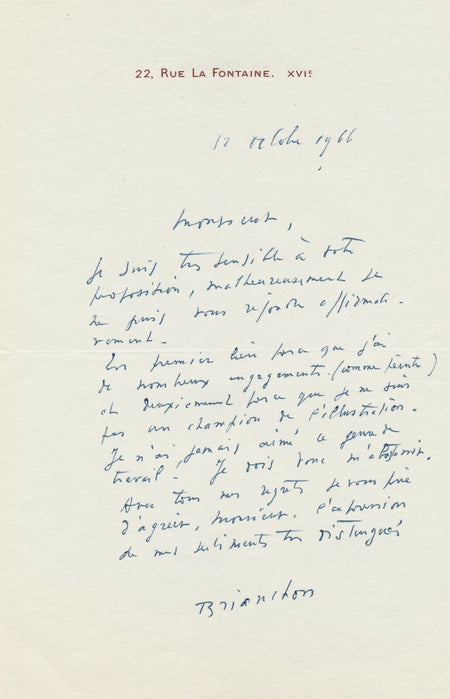 22, RUE LA FONTAINE. XVIE
12 octobre 1966
Monsieur,
Je suis très sensible à votre
proposition, malheureusement je
ne puis vous répondre affirmati-
vement.
En premier lieu parce que j'ai
de nombreux engagements (comme peintre)
et deuxièmement parce que je ne suis
pas un champion de l'illustration.
Je n'ai jamais aimé ce genre de
travail. Je dois donc m'abstenir.
Avec tous mes regrets je vous prie
d'agréer, Monsieur, l'expression
de mes sentiments très distingués
Brianchon